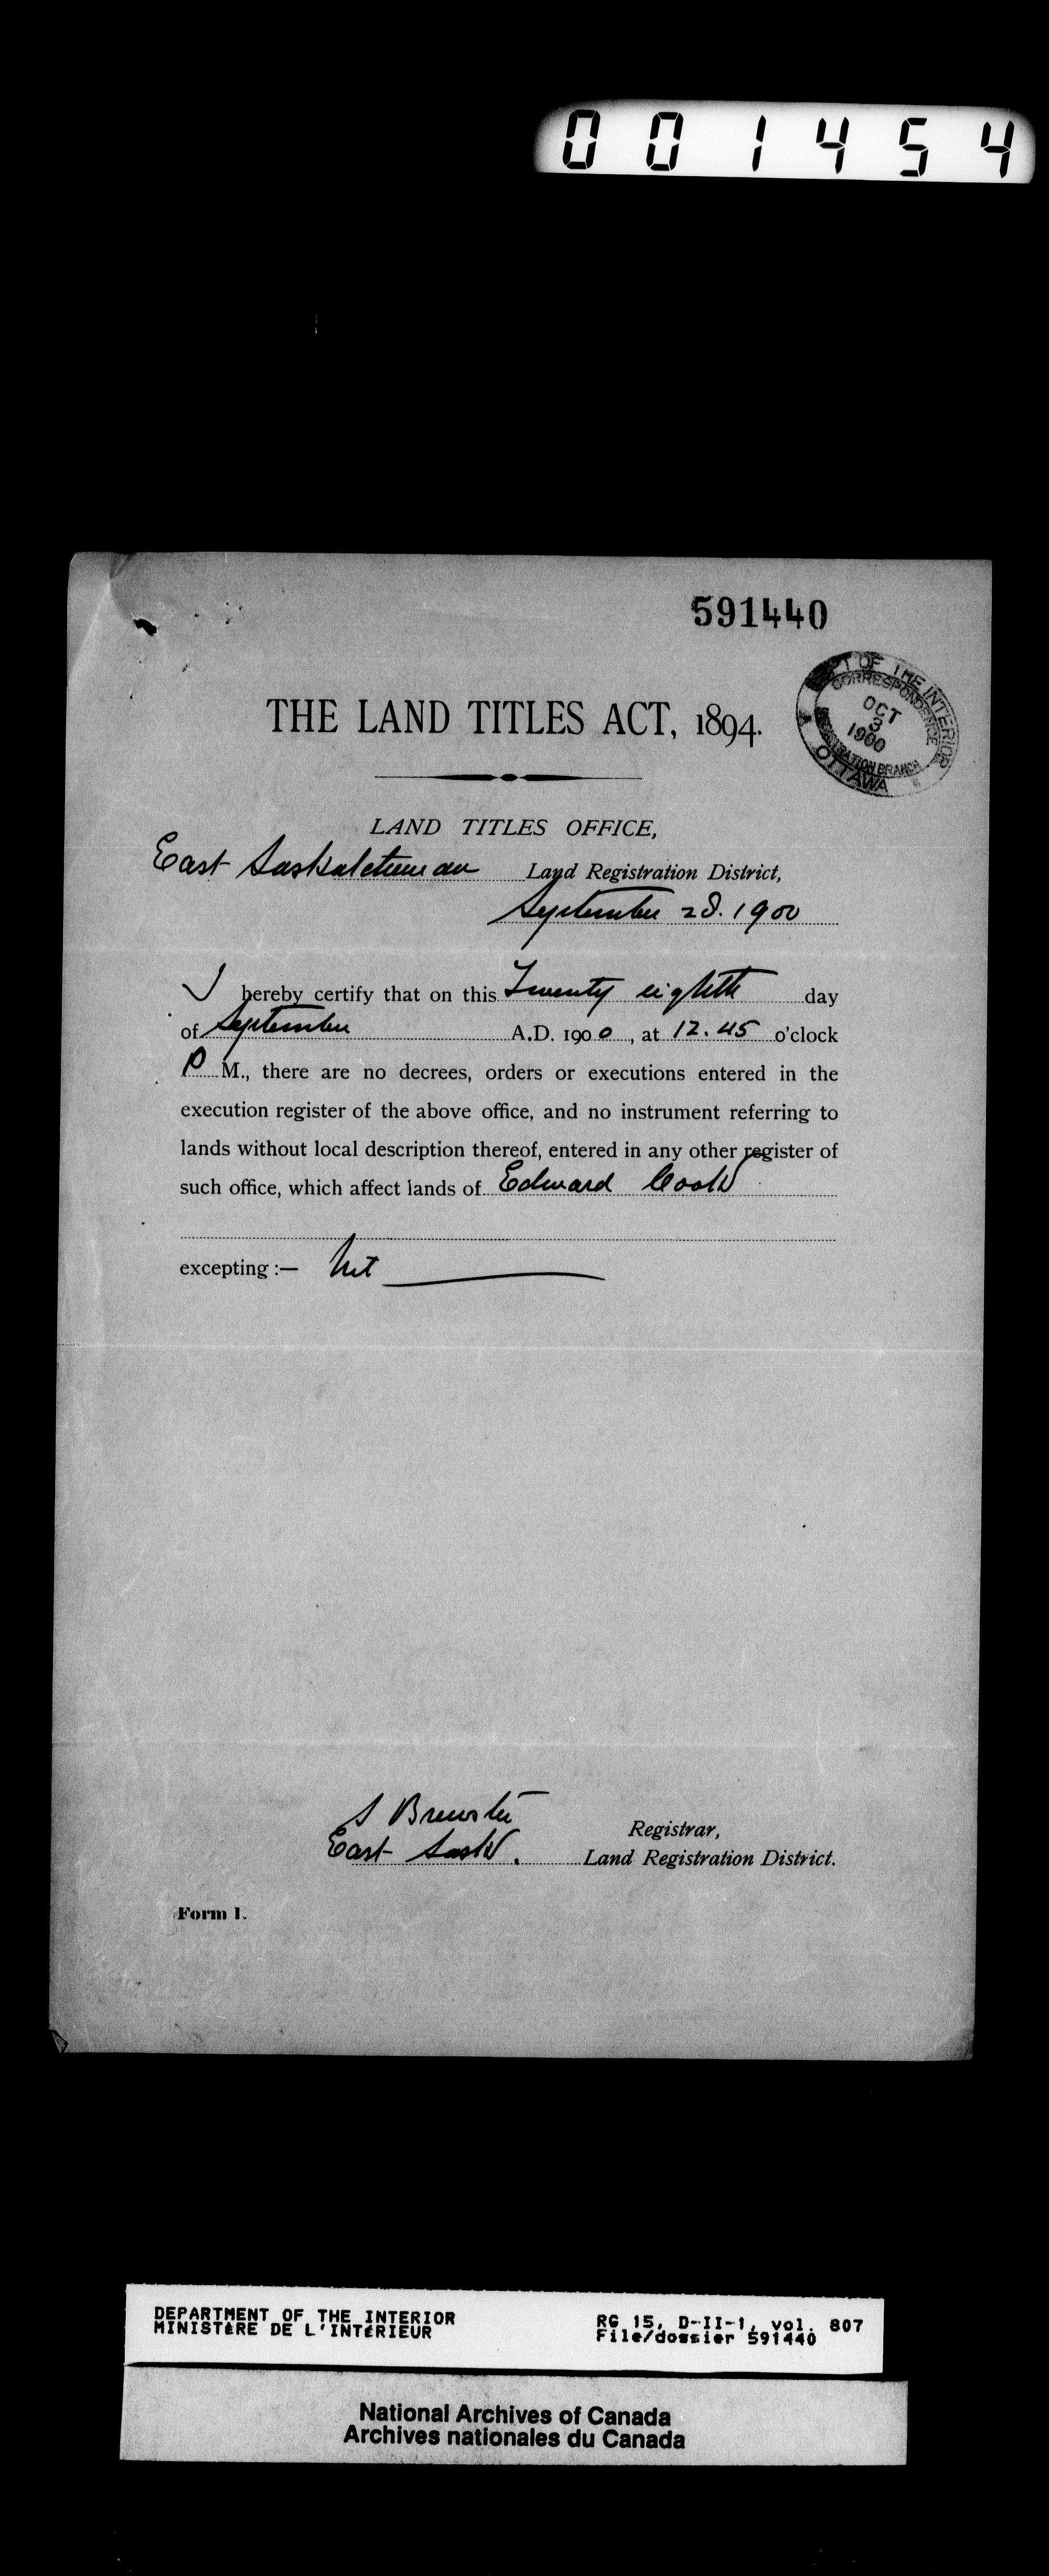 001454
591440
DEPT OF THE INTERIOR
CORRESPONDENCE
OCT
3
1900
REGISTRATION BRANCH
OTTAWA
THE LAND TITLES ACT, 1894.
LAND TITLES OFFICE,
East Saskatchewan Land Registration District,
September 28. 1900
I hereby certify that on this Twenty eighth day
of September A.D. 1900, at 12.45 o'clock
P M., there are no decrees, orders or executions entered in the
execution register of the above office, and no instrument referring to
lands without local description thereof, entered in any other register of
such office, which affect lands of Edward Cook
excepting :—
S Brewster Registrar,
East Sask. Land Registration District.
Form I.
DEPARTMENT OF THE INTERIOR
MINISTÈRE DE L'INTÉRIEUR
RG 15, D-II-1, vol. 807
File/dossier 591440
National Archives of Canada
Archives nationales du Canada